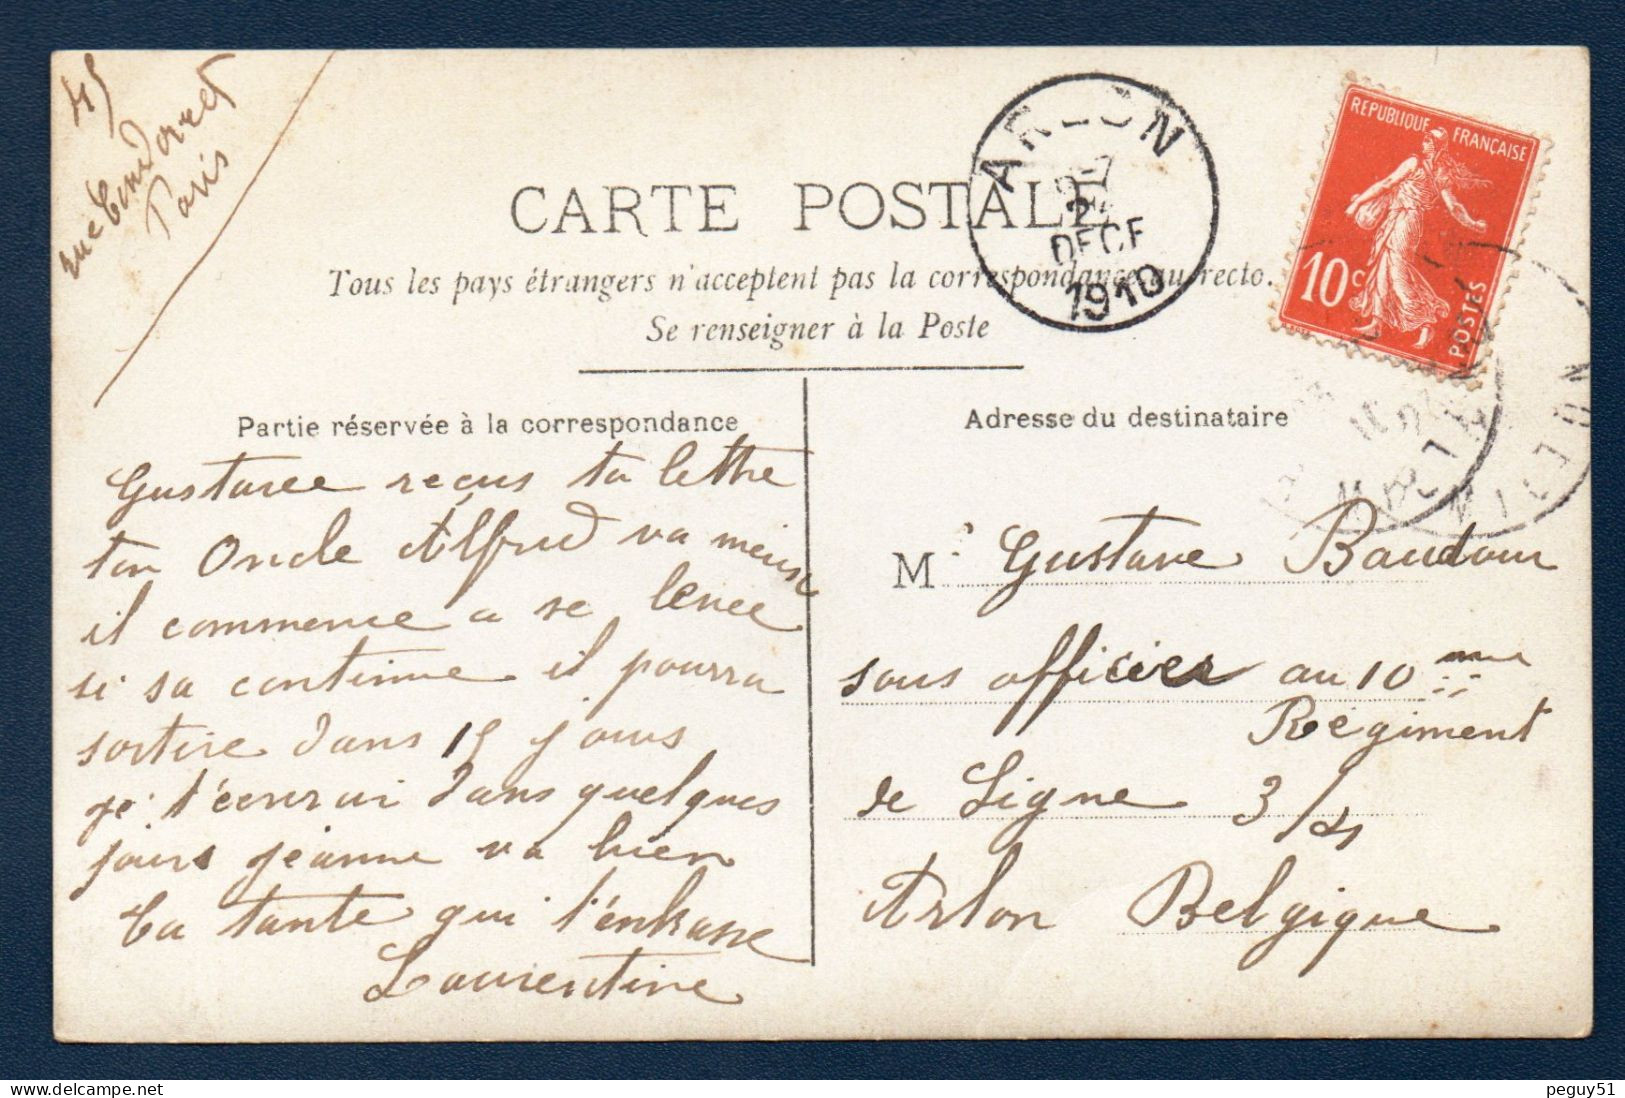 45
rue Condorcet
Paris
CARTE POSTALE
Tous les pays étrangers n'acceptent pas la correspondance au recto.
Se renseigner à la Poste
ARLON
DECE
1910
REPUBLIQUE FRANÇAISE
10c
POSTES
Partie réservée à la correspondance
Gustavee reçus ta lettre
ton Oncle Alfred va meiux
il commence a se levee
si sa continue il pourra
sortire dans 15 jours
je t'ecrirai dans quelques
jours jeanne va bien
ta tante qui t'enbrasse
Laurentine
Adresse du destinataire
M Gustave Baudour
sous officier au 10me
Régiment
de Ligne 3/4
Arlon Belgique
peguy51